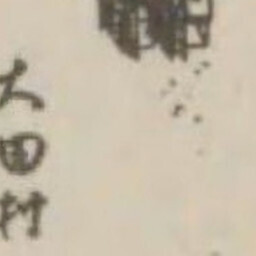 大田村